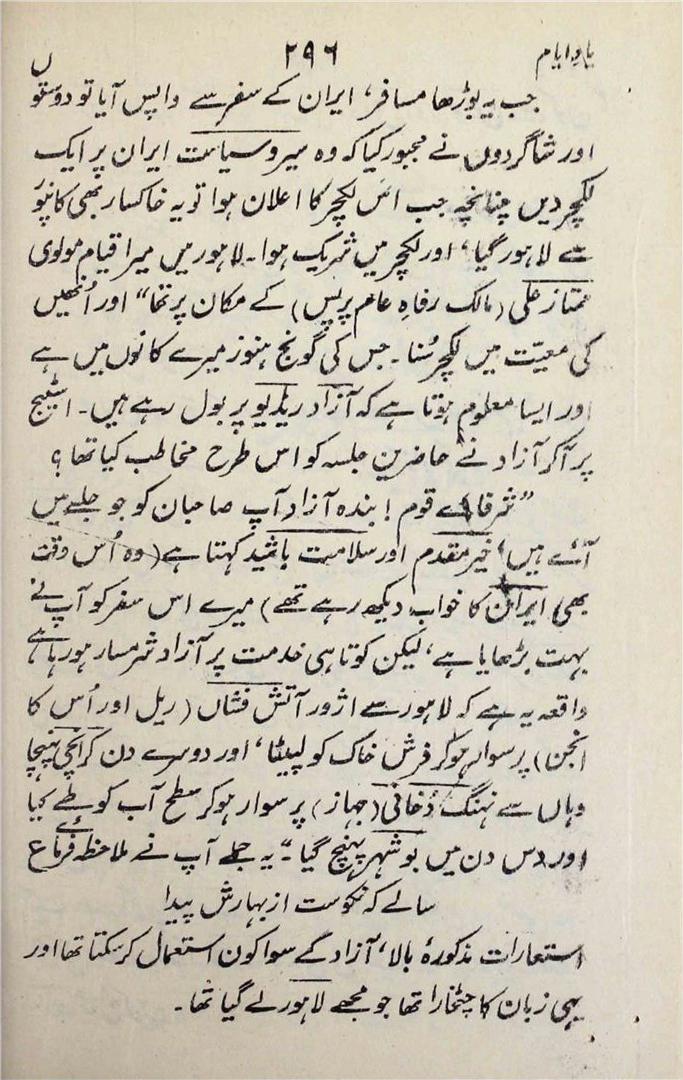 یادِ ایام ۲۹۶
جب یہ بوڑھا مسافر، ایران کے سفر سے واپس آیا تو دوستوں
اور شاگردوں نے مجبور کیا کہ وہ سیر و سیاحت ایران پر ایک
لکچر دیں چنانچہ جب اس لکچر کا اعلان ہوا تو یہ خاکسار بھی کانپور
سے لاہور گیا، اور لکچر میں شریک ہوا۔ لاہور میں میرا قیام مولوی
ممتاز علی (مالک رفاہِ عام پریس) کے مکان پر تھا" اور اُنھیں
کی معیّت میں لکچر سُنا۔ جس کی گونج ہنوز میرے کانوں میں ہے
اور ایسا معلوم ہوتا ہے کہ آزاد ریڈیو پر بول رہے ہیں۔ اسٹیج
پر آکر آزاد نے حاضرینِ جلسہ کو اس طرح مخاطب کیا تھا ؟
"شرفائے قوم ! بندہ آزاد آپ صاحبان کو جو جلسے میں
آئے ہیں، خیر مقدم اور سلامت باشید کہتا ہے (وہ اُس وقت
بھی ایران کا خواب دیکھ رہے تھے) میرے اس سفر کو آپ نے
بہت بڑھایا ہے، لیکن کوتاہی خدمت پر آزاد شرمسار ہو رہا ہے
واقعہ یہ ہے کہ لاہور سے اژور آتش فشاں (ریل اور اُس کا
انجن) پر سوار ہو کر فرش خاک کو لپیٹا، اور دوسرے دن کراچی پہنچا
وہاں سے نہنگ دُخانی (جہاز) پر سوار ہوکر سطح آب کو طے کیا
اور دس دن میں بوشہر پہنچ گیا۔" یہ جملے آپ نے ملاحظہ فرمائے ع
سالے کہ نکوست از بہارش پیدا
استعارات مذکورۂ بالا، آزاد کے سوا کون استعمال کرسکتا تھا اور
یہی زبان کا چٹخارا تھا جو مجھے لاہور لے گیا تھا۔